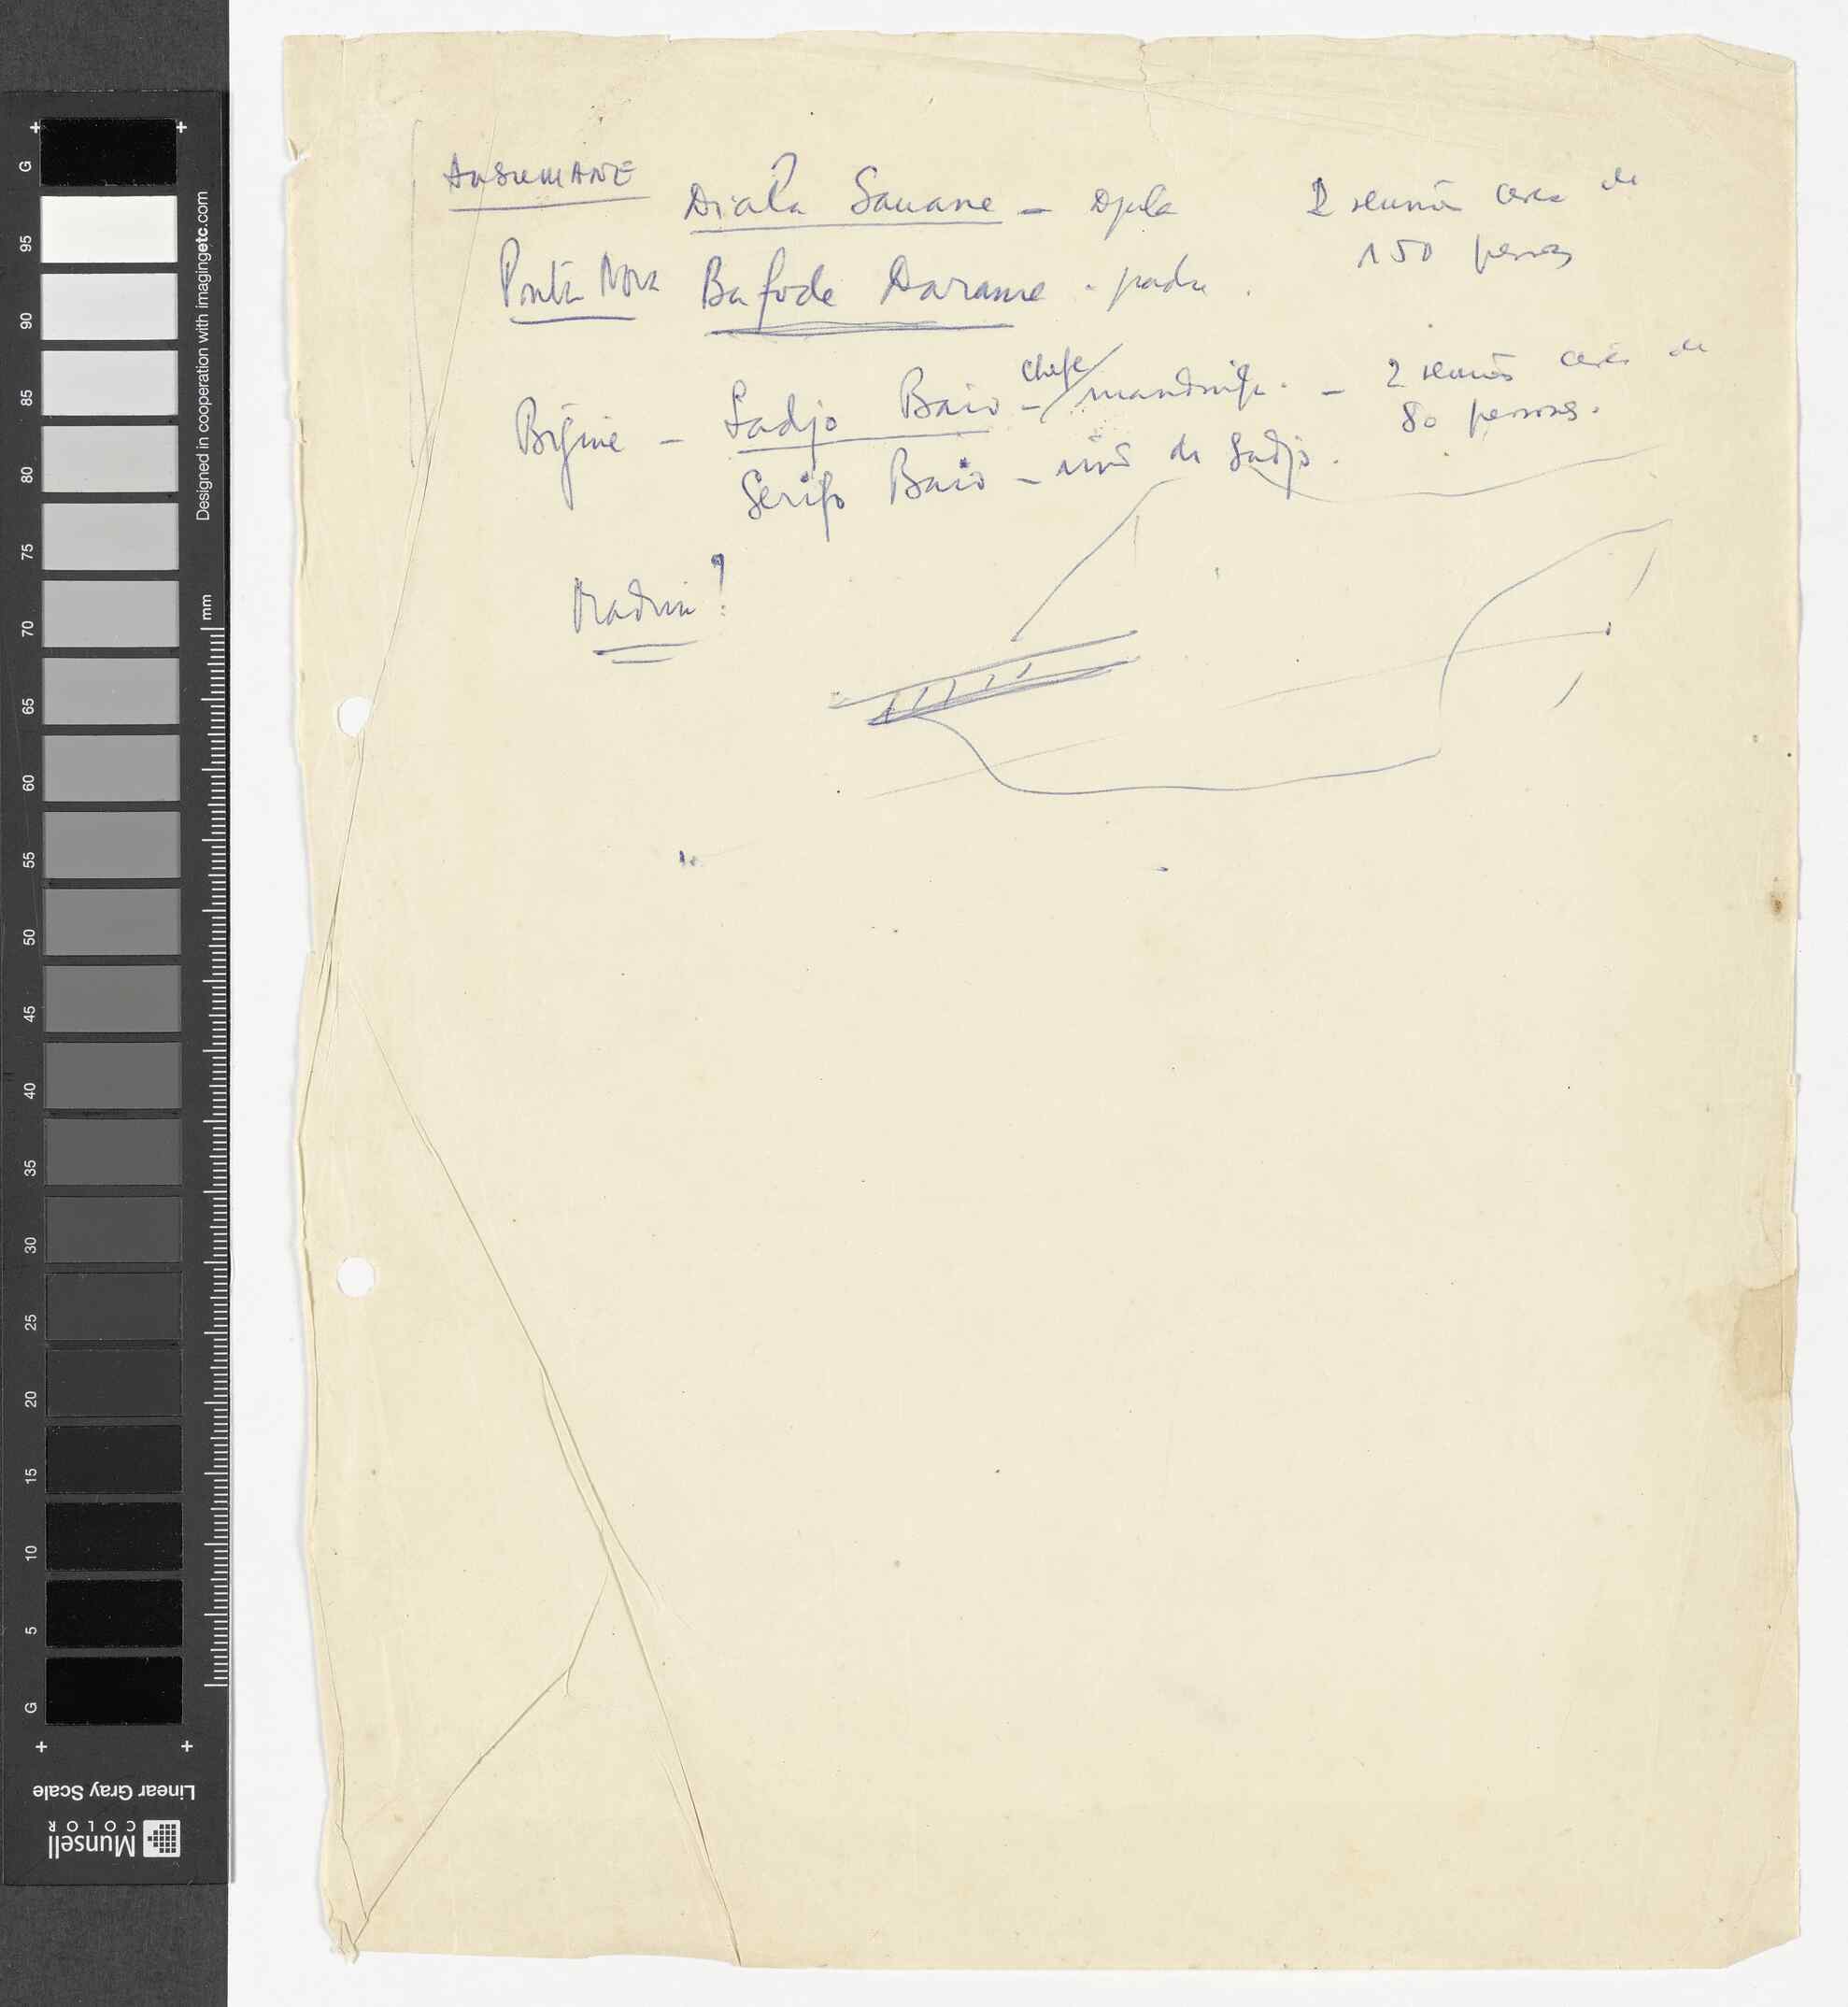 ANSUMANE
Diata Sauane - Djula 2 reunião cerca de
150 pessoas
Ponta Nova Bafode Darame - padre.
chefe
Bijine - Sadjo Baio - mandinga. - 2 reuniões cerca de
80 pessoas.
Serifo Baio - irmão de Sadjo.
?
G
95
90
85
80
75
70
65
60
55
50
45
40
35
30
25
20
15
10
5
G
mm
Designed in cooperation with imagingetc.com
Linear Gray Scale
Munsell
COLOR